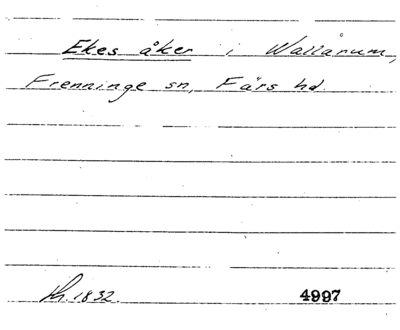 Ekes åker i Wallarum,
Frenninge sn, Färs hd.
Lh. 1832. 4997